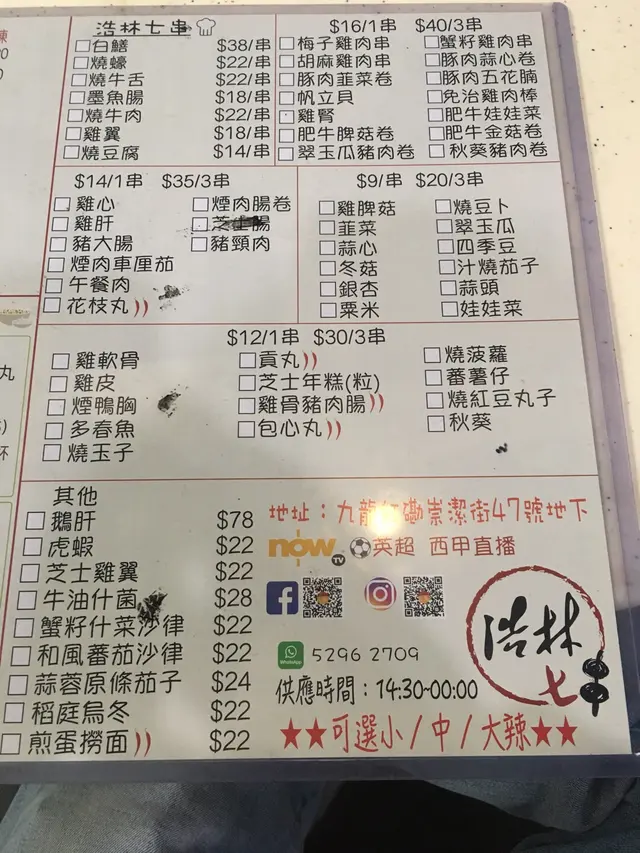 浩林七串
□白鱔 $38/串
□燒蠔 $22/串
□燒牛舌 $22/串
□墨魚腸 $18/串
□燒牛肉 $22/串
□雞翼 $18/串
□燒豆腐 $14/串
$16/1串 $40/3串
□梅子雞肉串 □蟹籽雞肉串
□胡麻雞肉串 □豚肉蒜心卷
□豚肉韮菜卷 □豚肉五花腩
□帆立貝 □免治雞肉棒
□雞腎 □肥牛娃娃菜
□肥牛脾菇卷 □肥牛金菇卷
□翠玉瓜豬肉卷 □秋葵豬肉卷
$14/1串 $35/3串
□雞心 □煙肉腸卷
□雞肝 □芝士腸
□豬大腸 □豬頸肉
□煙肉車厘茄
□午餐肉
□花枝丸
$9/串 $20/3串
□雞脾菇 □燒豆卜
□韮菜 □翠玉瓜
□蒜心 □四季豆
□冬菇 □汁燒茄子
□銀杏 □蒜頭
□粟米 □娃娃菜
$12/1串 $30/3串
□雞軟骨 □貢丸 □燒菠蘿
□雞皮 □芝士年糕(粒) □蕃薯仔
□煙鴨胸 □雞骨豬肉腸 □燒紅豆丸子
□多春魚 □包心丸 □秋葵
□燒玉子
其他
□鵝肝 $78
□虎蝦 $22
□芝士雞翼 $22
□牛油什菌 $28
□蟹籽什菜沙律 $22
□和風蕃茄沙律 $22
□蒜蓉原條茄子 $24
□稻庭烏冬 $22
□煎蛋撈面 $22
地址：九龍紅磡崇潔街47號地下
now TV 英超 西甲直播
WhatsApp 5296 2709
供應時間：14:30-00:00
★★可選小/中/大辣★★
浩林
七串